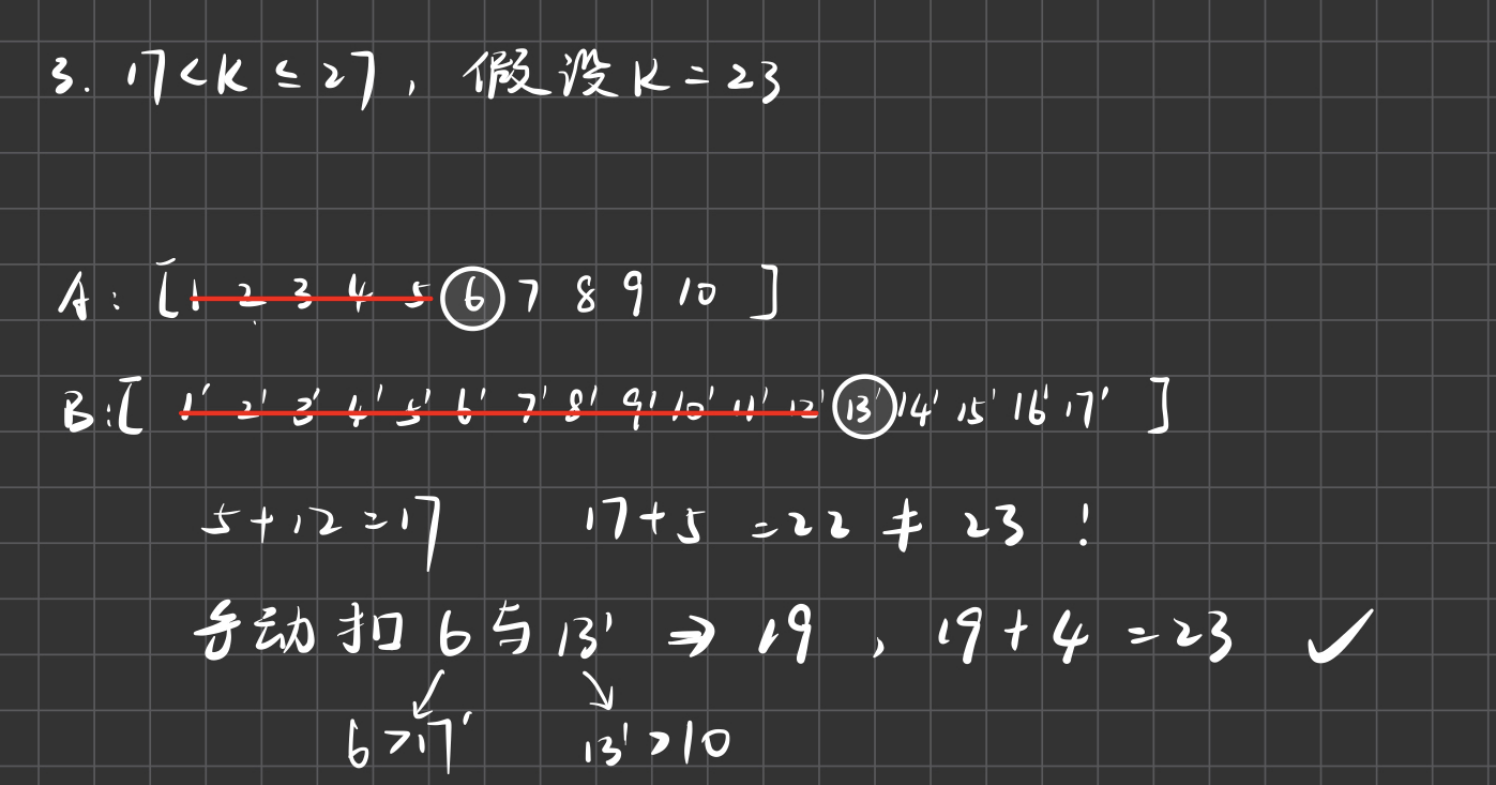 3. 17<K≤27, 假设K=23
A: [1 2 3 4 5 6 7 8 9 10 ]
B:[ 1' 2' 3' 4' 5' 6' 7' 8' 9' 10' 11' 12' 13' 14' 15' 16' 17' ]
5+12=17 17+5 =22 ≠ 23 !
手动扣 6 与 13' ⇒ 19 , 19+4 =23 ✓
6>17' 13'>10